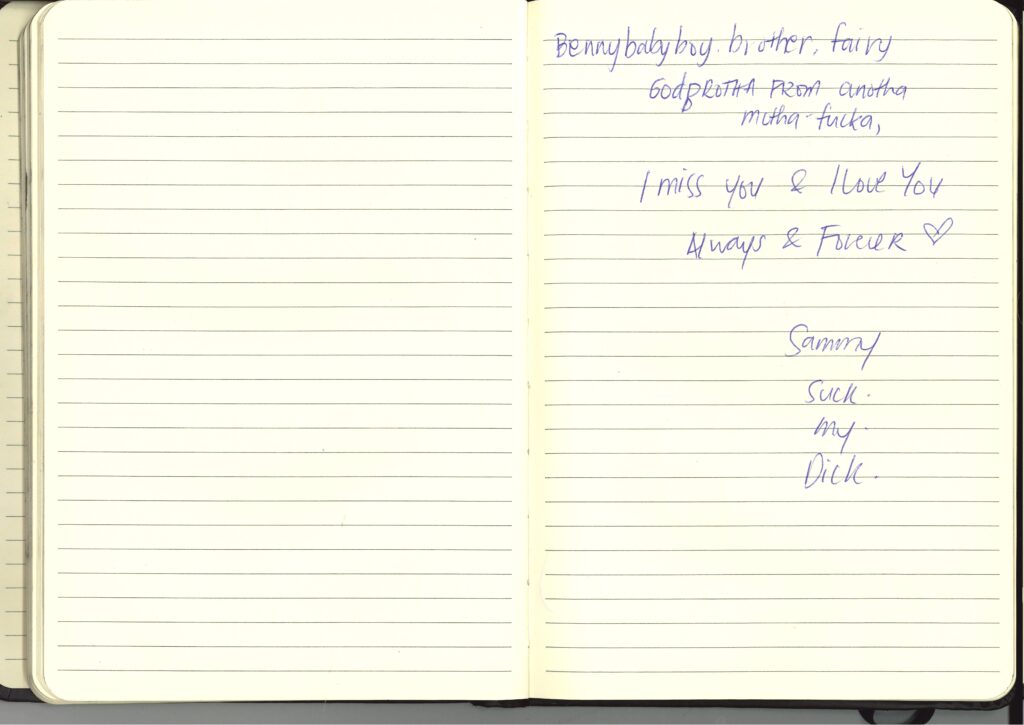 Bennybabyboy. brother, fairy
GodBROTHA FROM anotha
mutha-fucka,
I miss you & I Love You
Always & Forever ♡
Sammy
Suck.
my.
Dick.